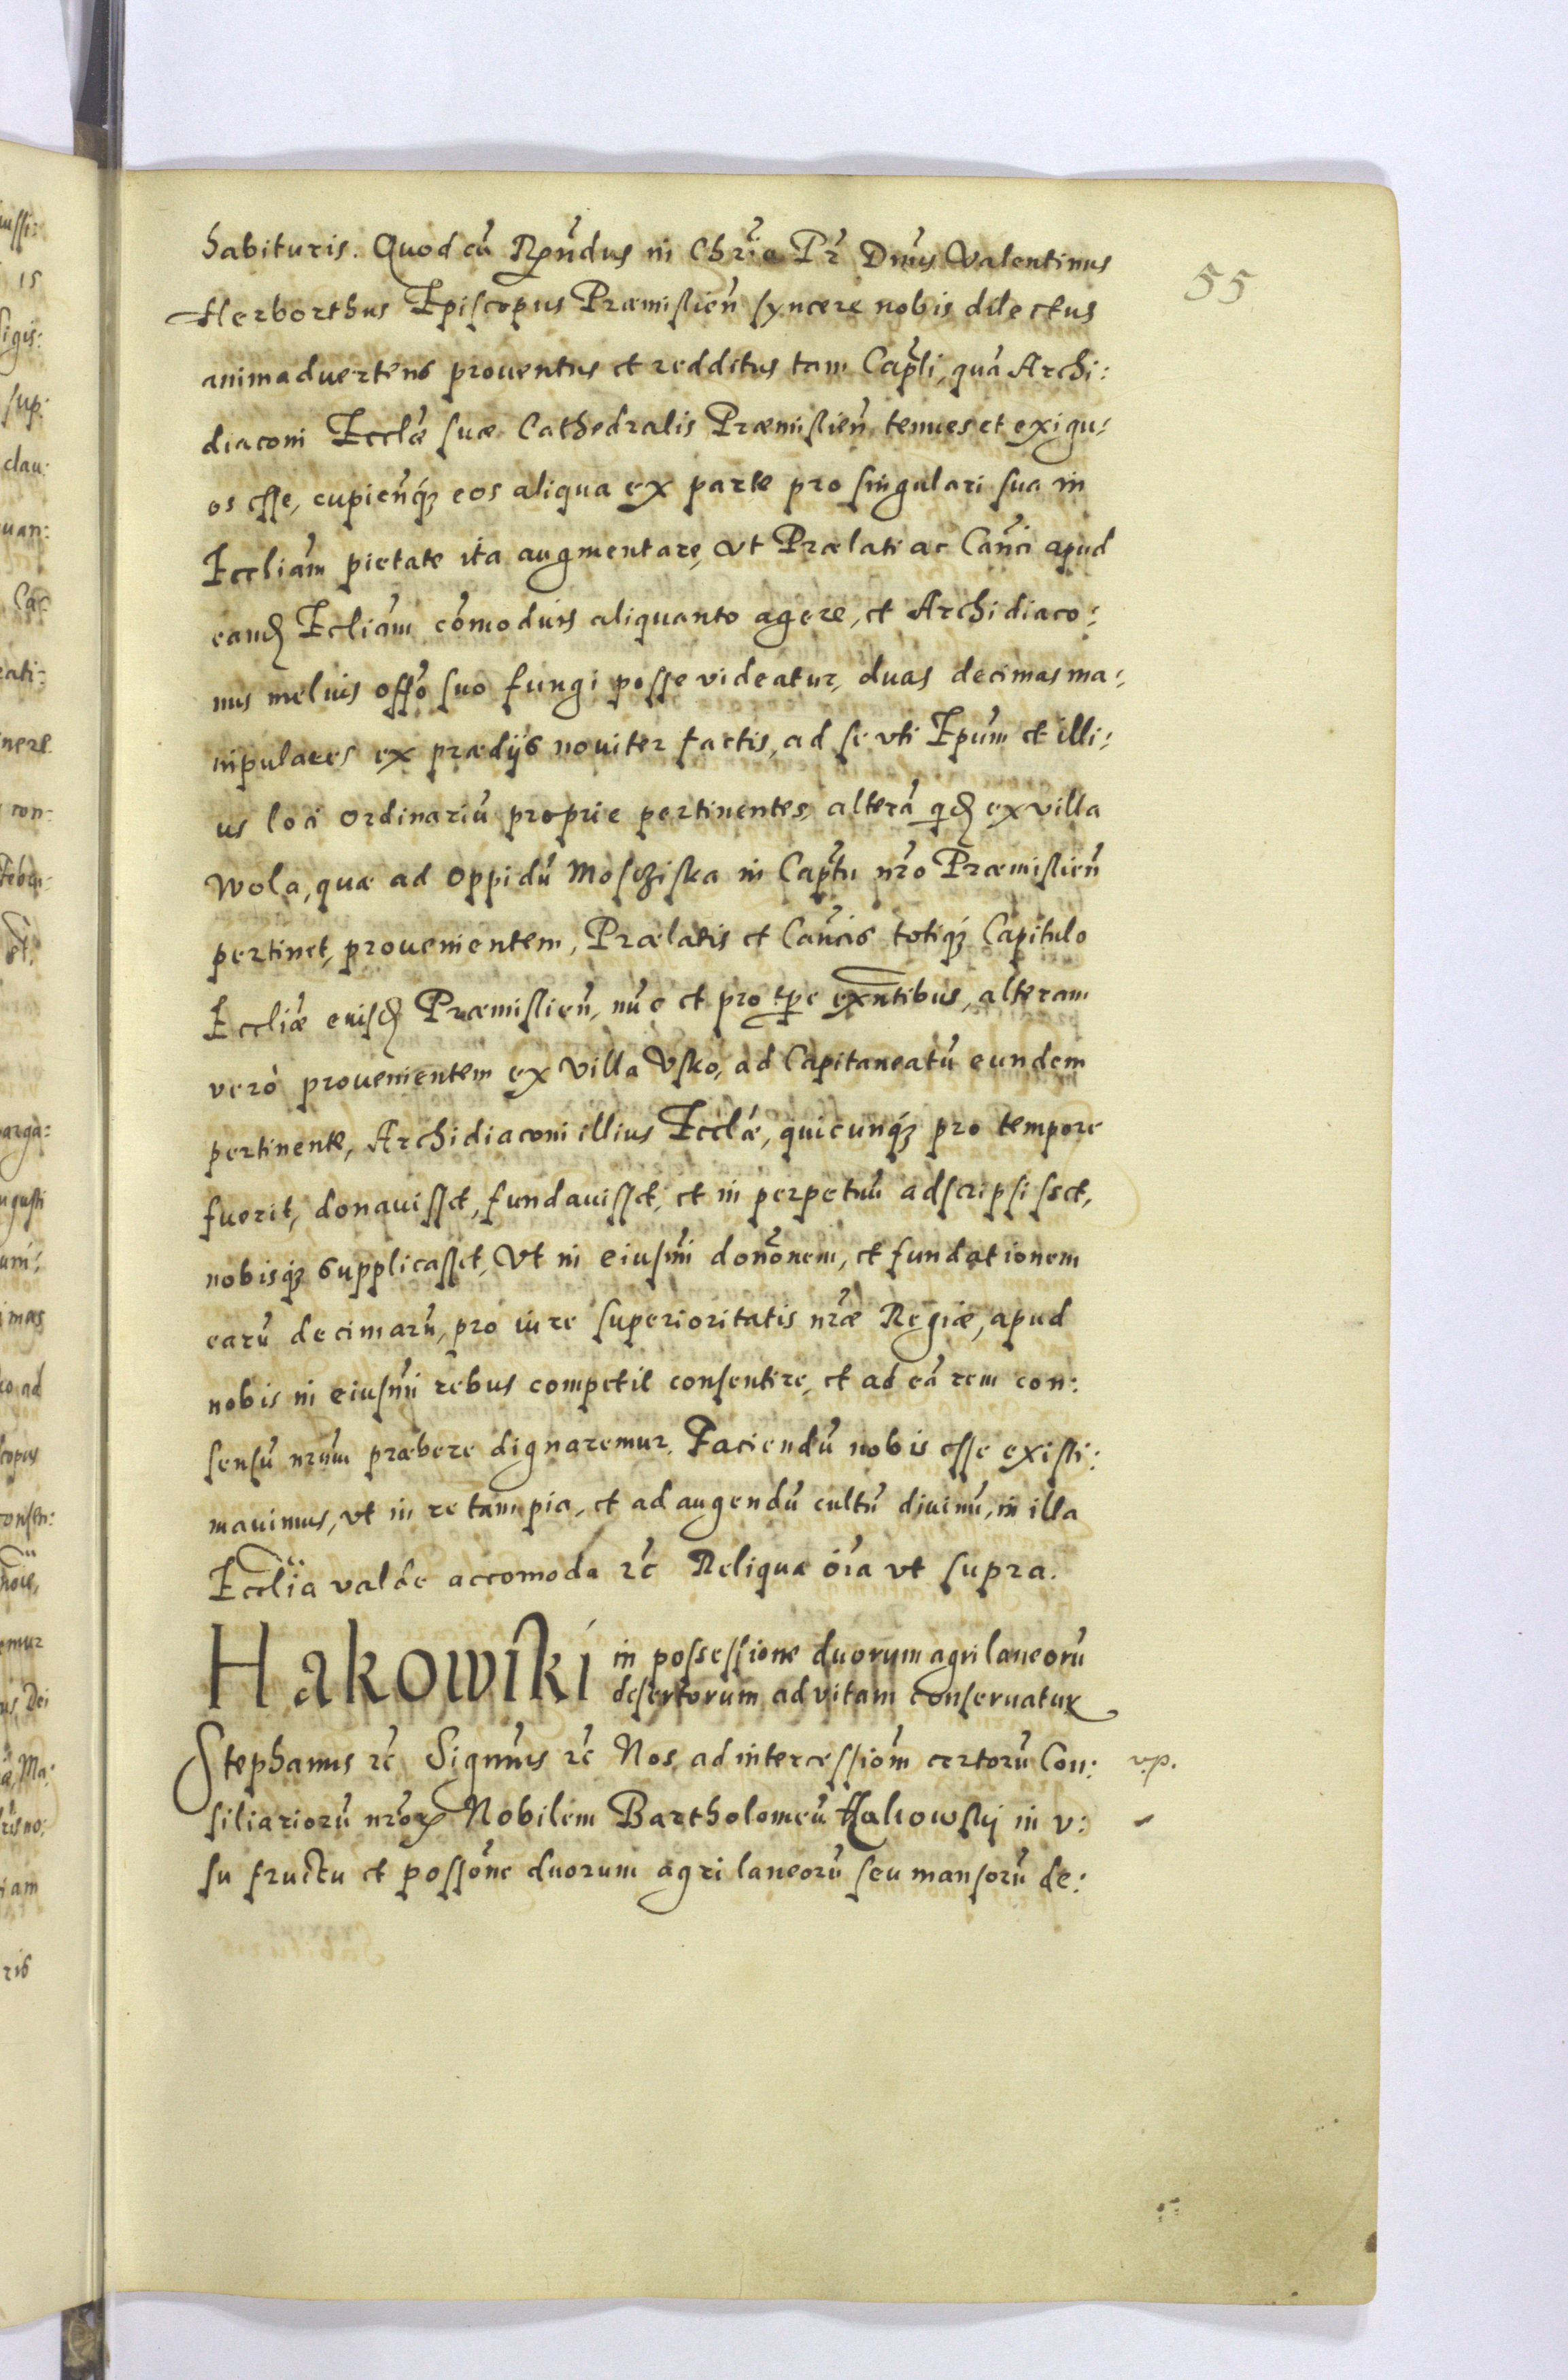 55
habituris. Quod cũ Rñdus in Chrõ Pr̃ Dnũs Valentinus
Herborthus Episcopus Præmislień syncere nobis dilectus
animaduertens prouentus et redditus tam Caplĩ, quã Archi:
diaconi Ecclæ̃ suæ Cathedralis Præmislień tenues et exigu:
os esse, cupienq́ʒ eos aliqua ex parte pro singulari sua in
Eccliãm pietate ita augmentare, vt Prælati ac Cañci apud
eand Ecliãm cõmodius aliquanto agere, et Archidiaco:
nus melius offõ suo fungi posse videatur, duas decimas ma:
nipulares ex prædijs nouiter factis, ad se vti Epũm et illi:
us loci ordinariũ proprie pertinentes, alterã qd ex villa
Wola, quæ ad oppidũ Mosczißka in Captũ nrõ Præmislień
pertinet, prouenientem, Prælatis et Cañcis totiq́ʒ Capitulo
Eccliæ̃ eiusd Præmislień, nũc et pro tpe exñtibus, alteram
verò prouenientem ex villa Vsko, ad Capitaneatũ eundem
pertinente, Archidiaconi illius Ecclæ̃, quicunq́ʒ pro tempore
fuerit, donauisset, fundauisset, et in perpetuũ adscripsisset,
nobisq́ʒ supplicasset, Vt in eiusm̃i donõnem, et fundationem
earũ decimarũ, pro iure superioritatis nræ̃ Regiæ, apud
nobis in eiusm̃i rebus competit consentire, et ad eã rem con:
sensũ nrũm præbere dignaremur. Faciendũ nobis esse existi:
mauimus, vt in re tam pia, et ad augendũ cultũ diuinũ, in illa
Ecclĩa valde accomoda rc̃ Reliqua oĩa vt supra.
Hakowski in possessione duorum agri laneorũ
desertorum ad vitam conseruatur
Stephanus rc̃ Signm̃s rc̃ Nos ad intercessiõm certorũ Con: v.p.
siliariorũ nrõrꝝ Nobilem Bartholomeũ Hakowskij in v:
su fructu et possõne duorum agri laneorũ seu mansorũ de: